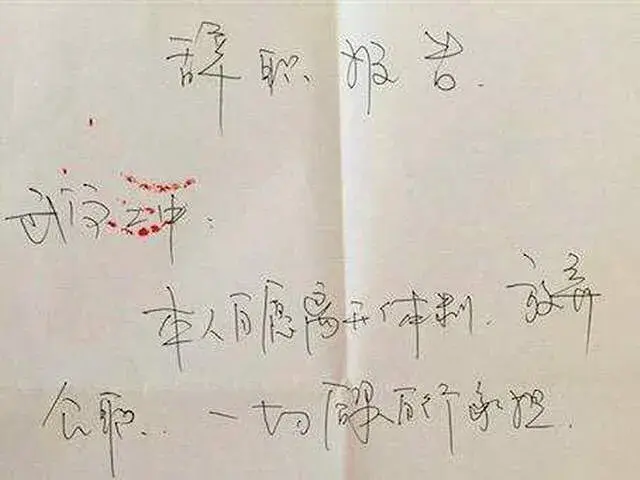 辞职报告.
武 二中:
本人自愿离开体制. 放弃
公职.. 一切后果自行承担.